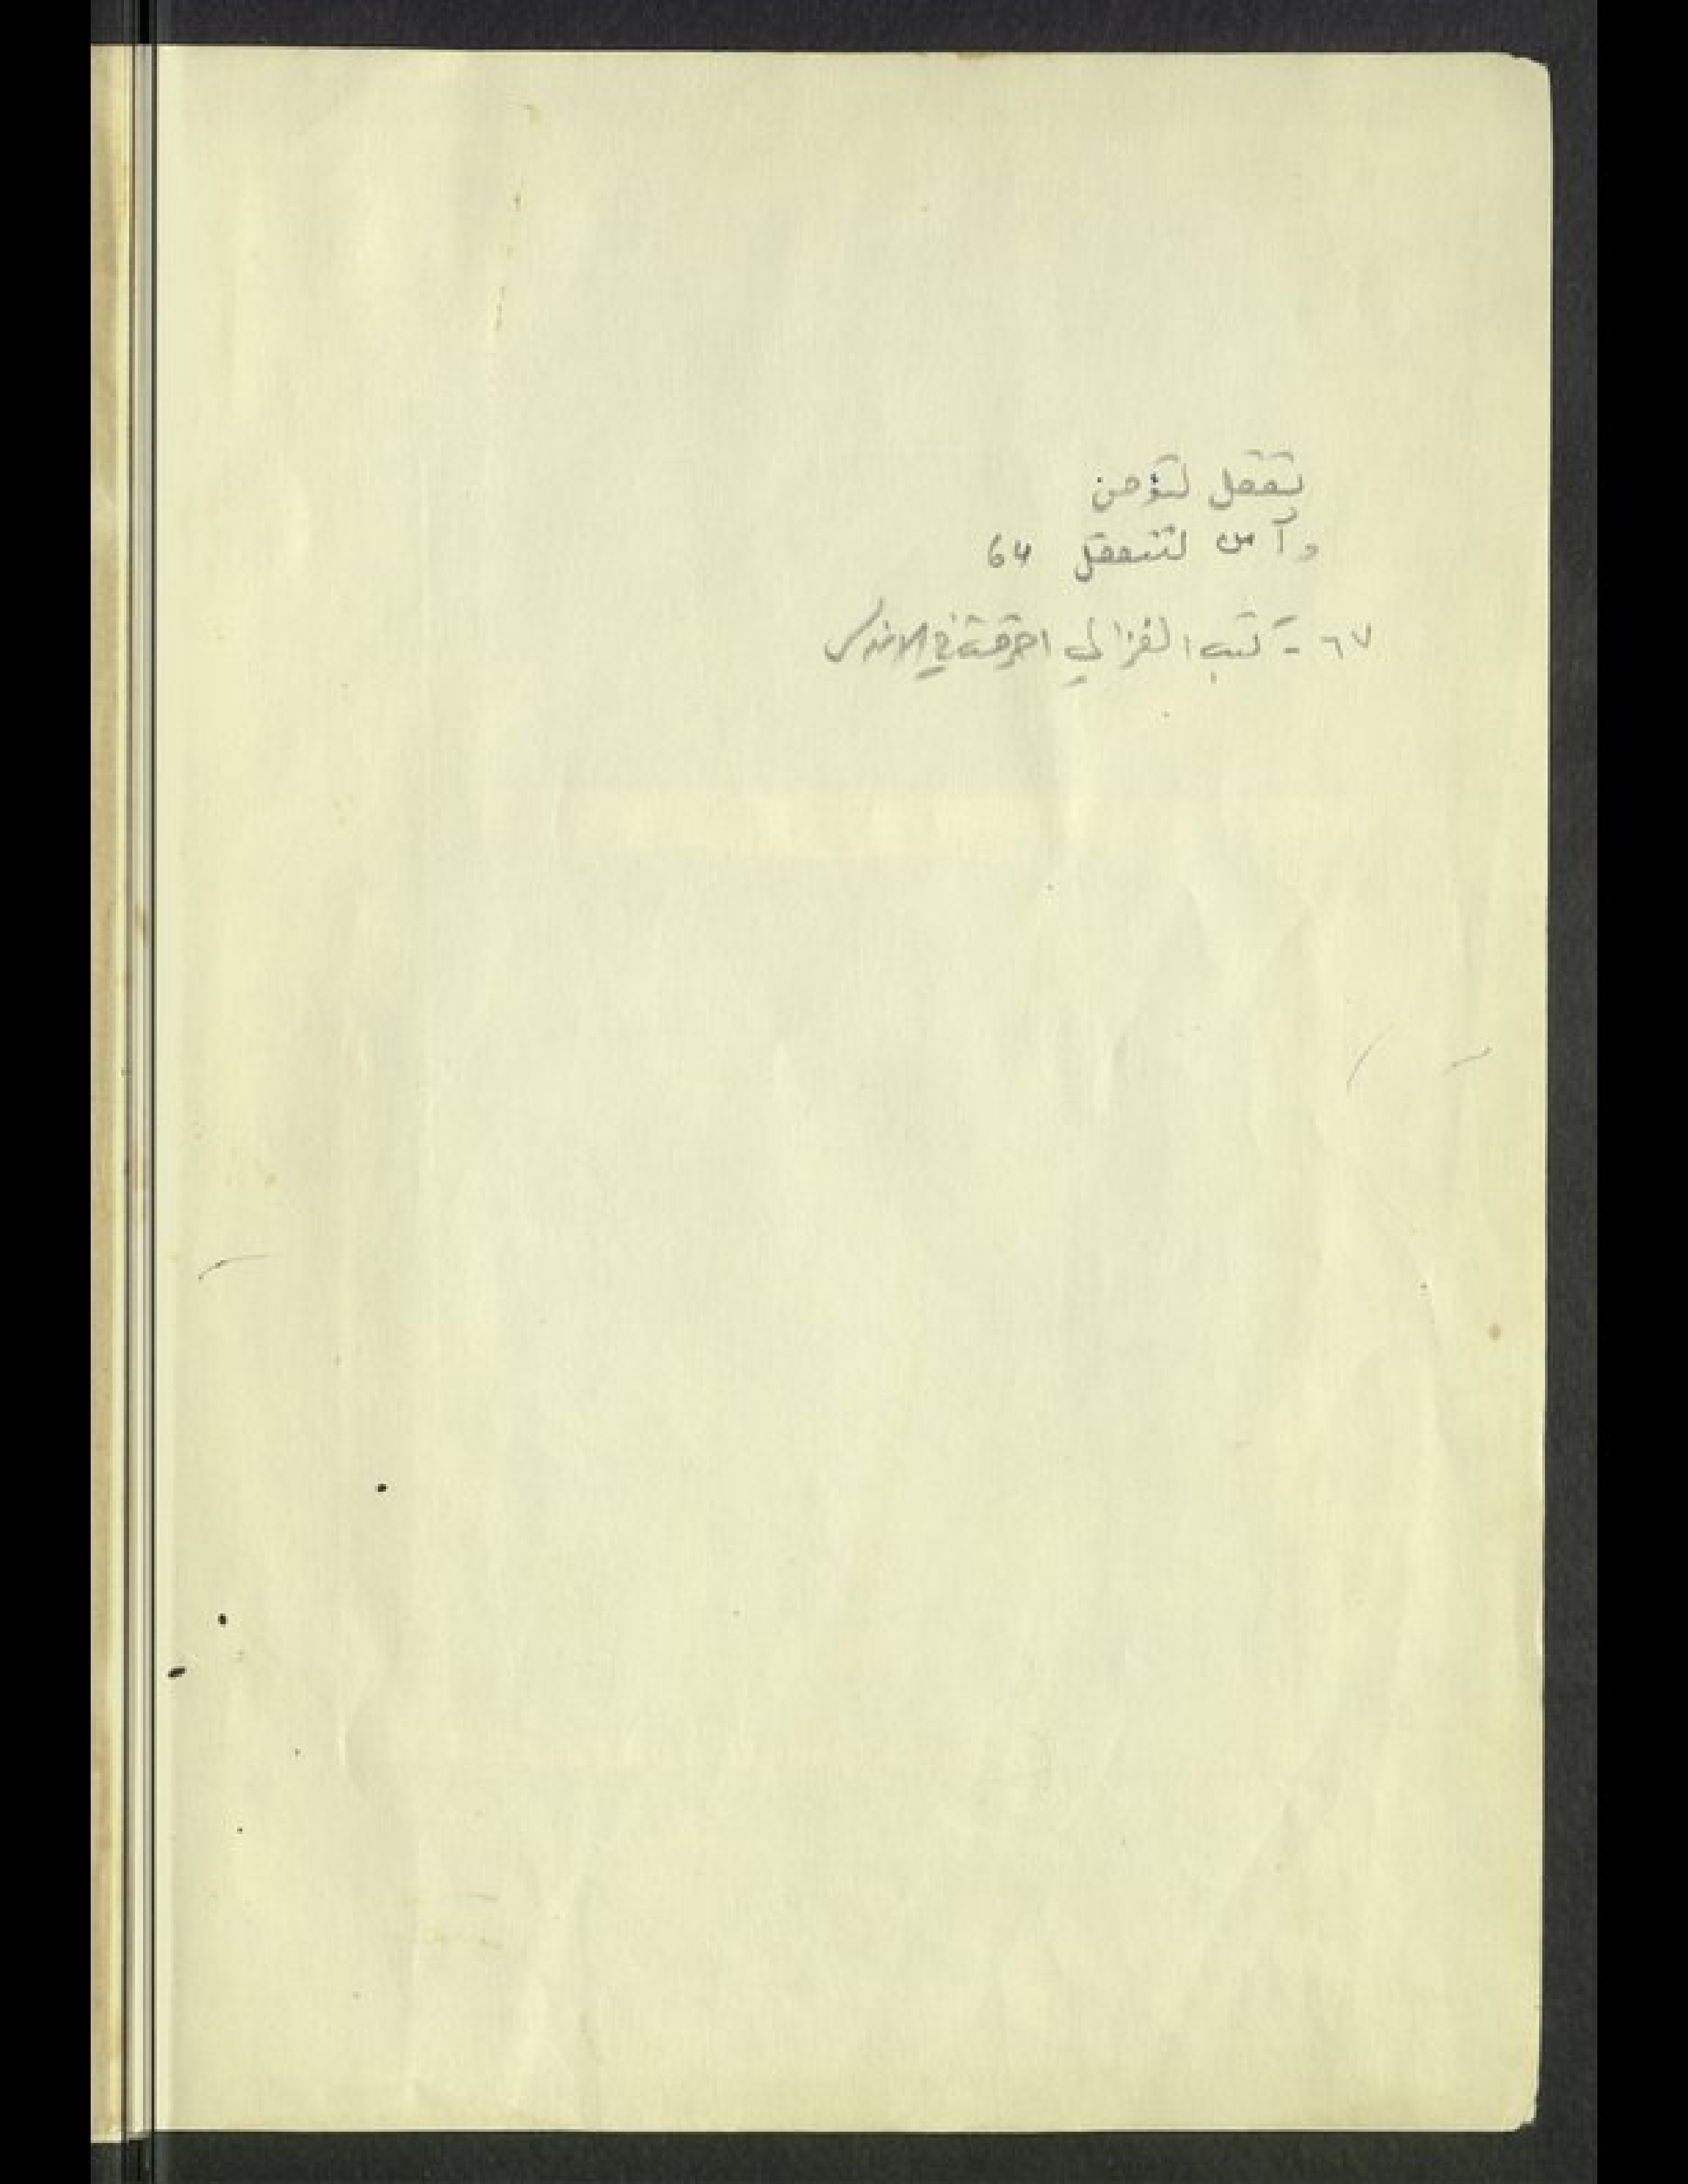 تعقل لتؤمن
وآمن لتتعقل 64
٦٧ - كتب الغزالي احرقت في الاندلس